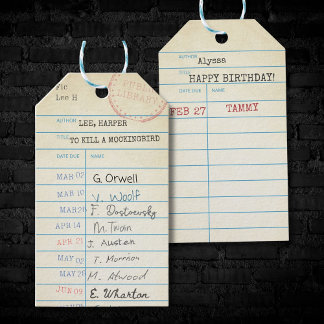 Fic
Lee H
PUBLIC
LIBRARY
AUTHOR LEE, HARPER
TITLE TO KILL A MOCKINGBIRD
DATE DUE NAME
MAR 02 G. Orwell
MAR 08 V. Woolf
MAR 28 F. Dostoevsky
APR 14 M. Twain
APR 21 J. Austen
MAY 02 T. Morrison
MAY 28 M. Atwood
JUN 09 E. Wharton
AUTHOR Alyssa
TITLE HAPPY BIRTHDAY!
DATE DUE NAME
FEB 27 TAMMY